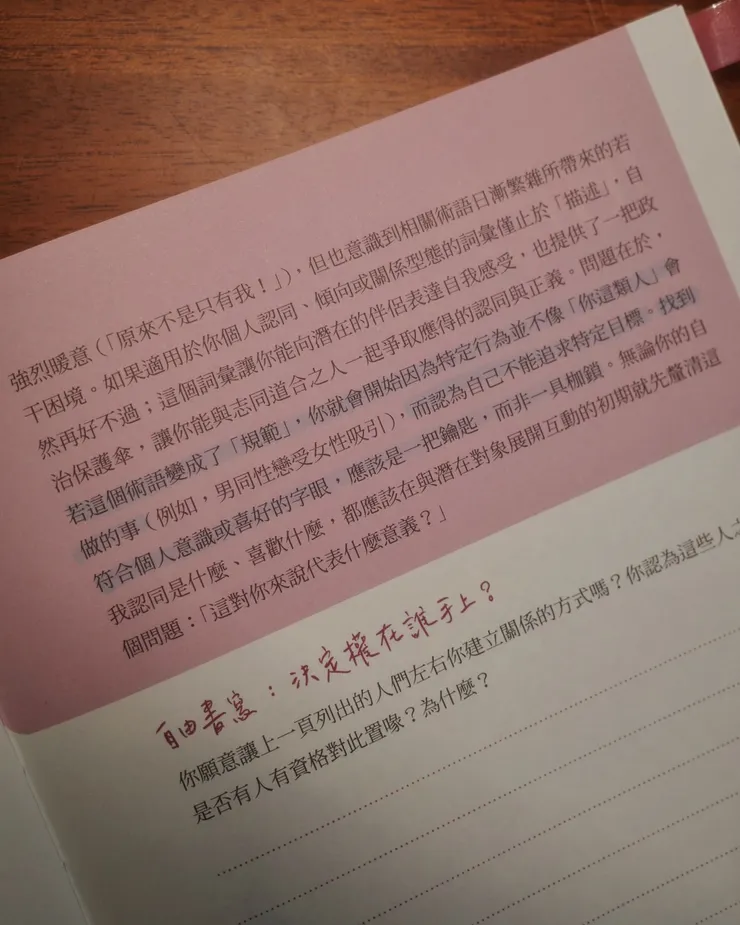 強烈暖意(「原來不是只有我!」),但也意識到相關術語日漸繁雜所帶來的若
干困境。如果適用於你個人認同、傾向或關係型態的詞彙僅止於「描述」,自
然再好不過;這個詞彙讓你能向潛在的伴侶表達自我感受,也提供了一把政
治保護傘,讓你能與志同道合之人一起爭取應得的認同與正義。問題在於,
若這個術語變成了「規範」,你就會開始因為特定行為並不像「你這類人」會
做的事(例如,男同性戀受女性吸引),而認為自己不能追求特定目標。找到
符合個人意識或喜好的字眼,應該是一把鑰匙,而非一具枷鎖。無論你的自
我認同是什麼、喜歡什麼,都應該在與潛在對象展開互動的初期就先釐清這
個問題:「這對你來說代表什麼意義?」
自由書寫:決定權在誰手上?
你願意讓上一頁列出的人們左右你建立關係的方式嗎?你認為這些人之
是否有人有資格對此置喙?為什麼?